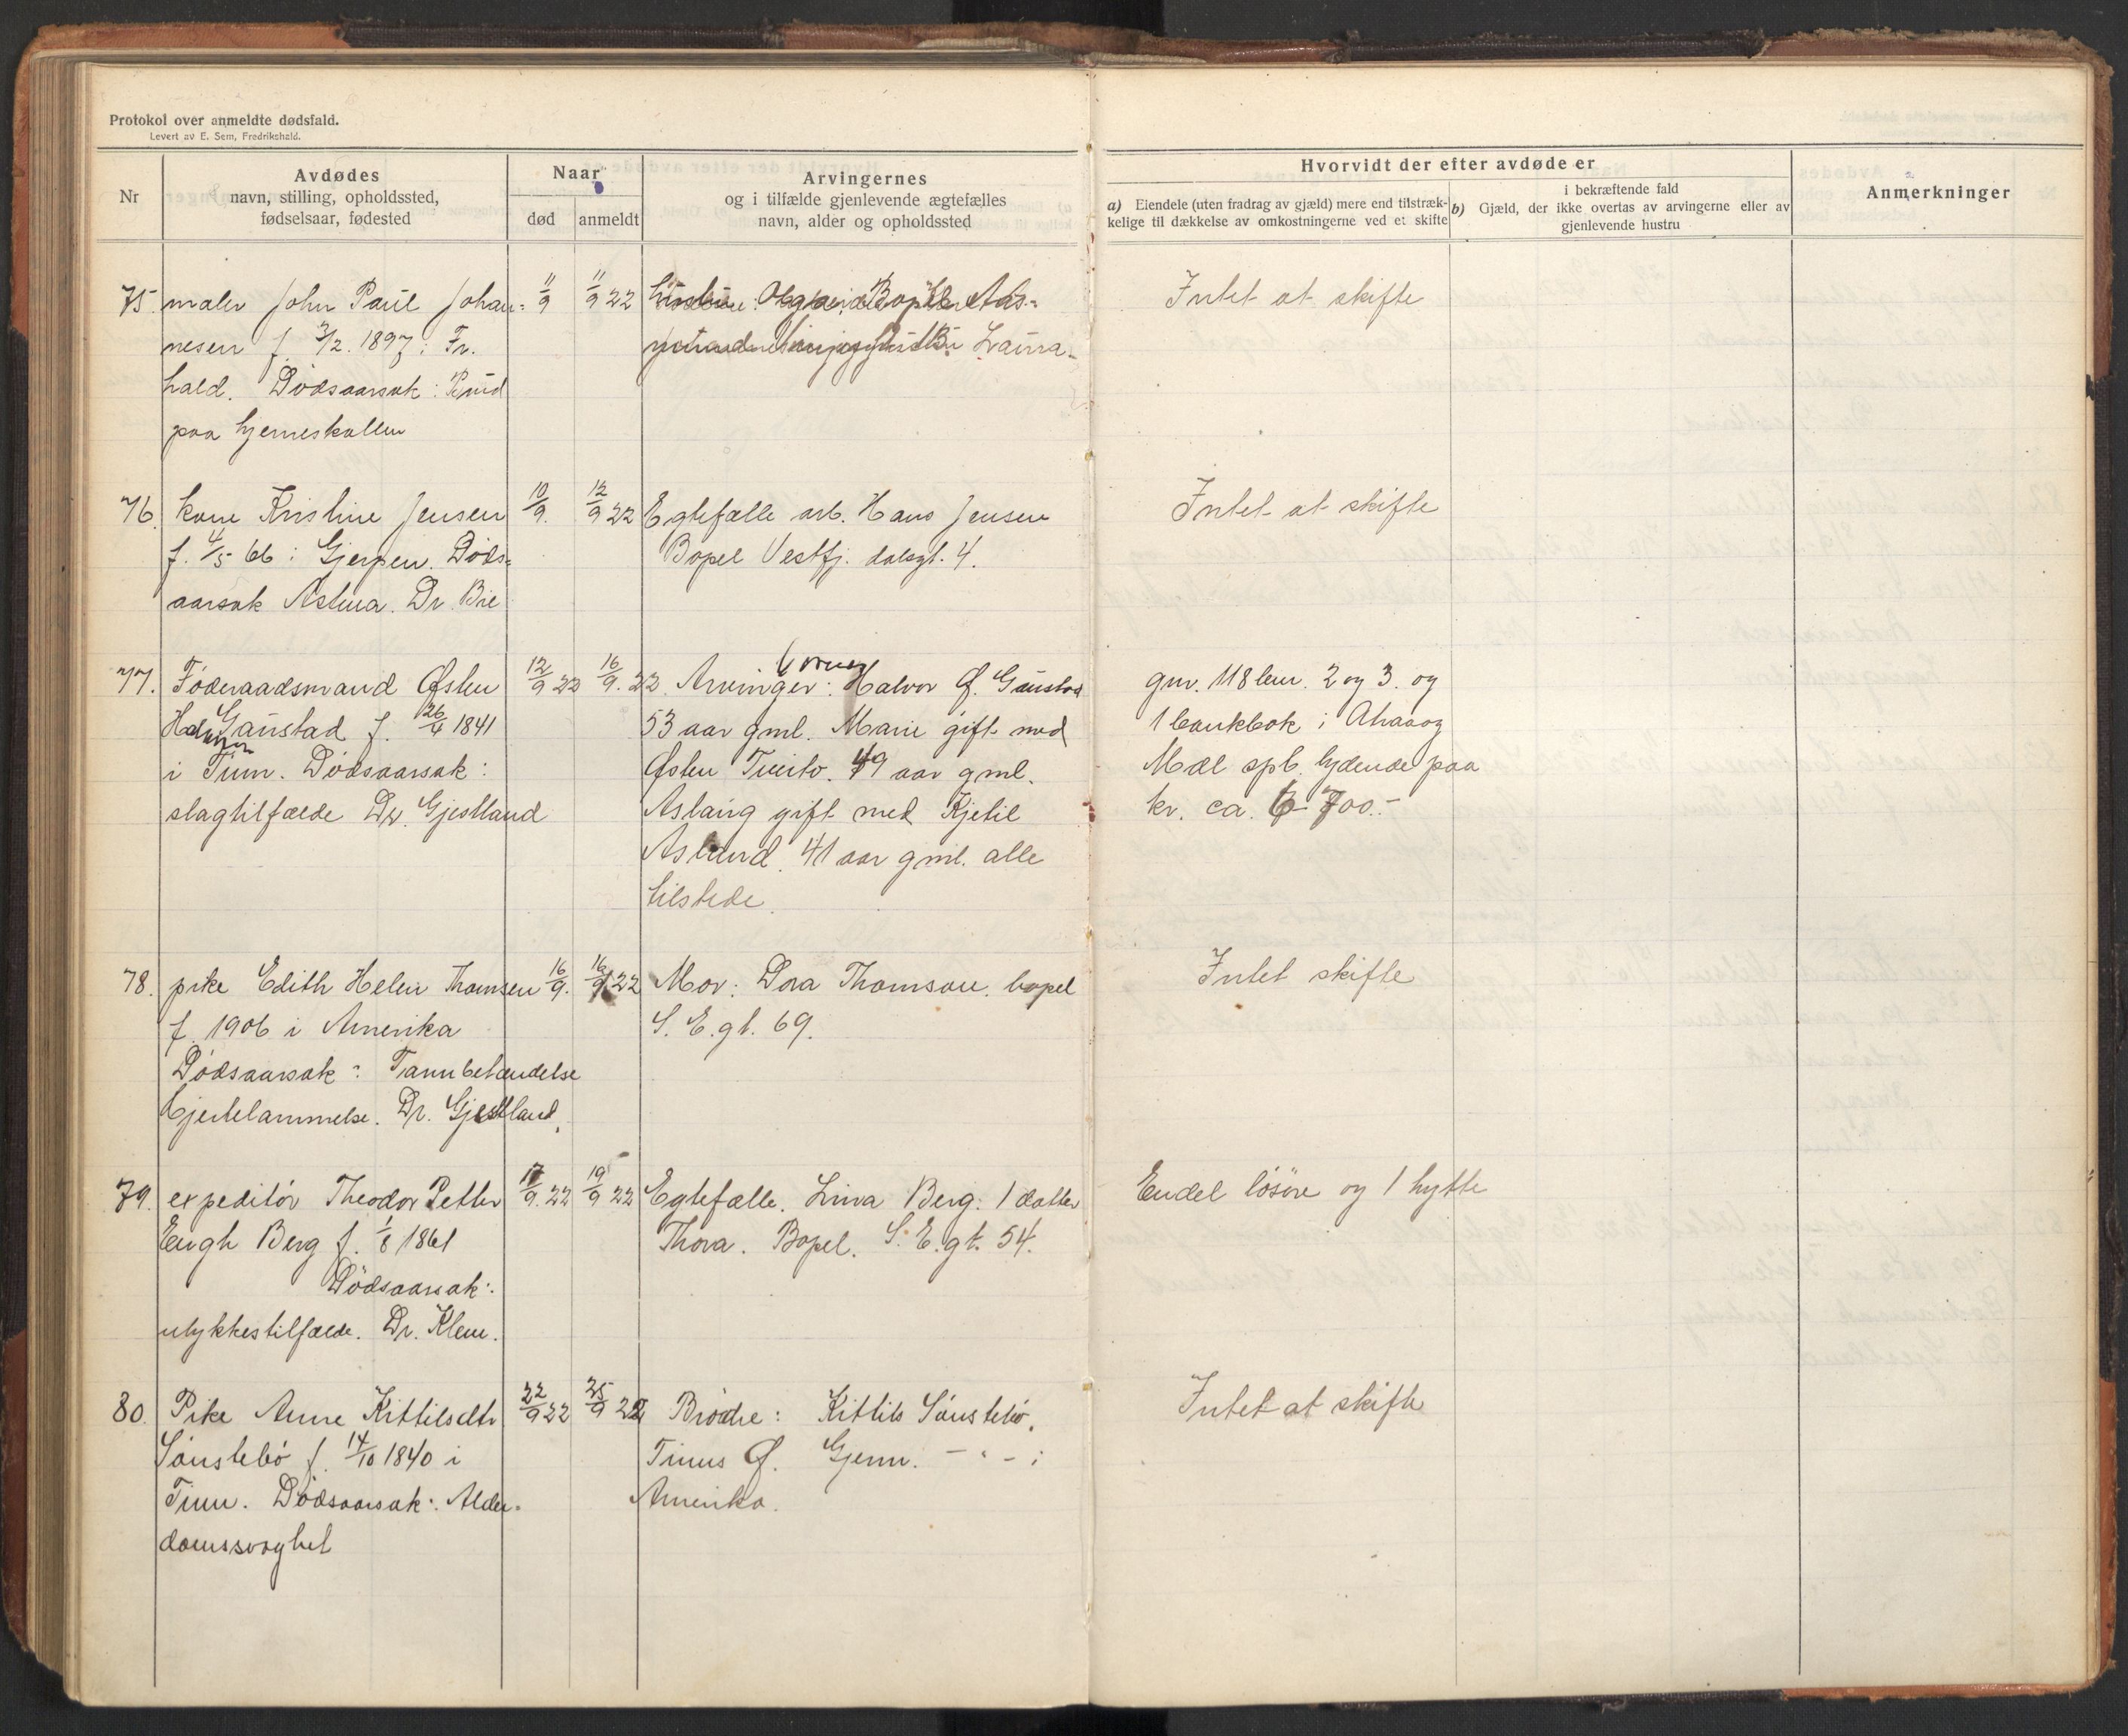 Protokol over anmeldte dødsfald.
Levert av E. Sem, Fredrikshald.
Nr
Avdødes
navn, stilling, opholdssted,
fødselsaar, fødested
Naar
død
anmeldt
Arvingernes
og i tilfælde gjenlevende ægtefælles
navn, alder og opholdssted
Hvorvidt der efter avdøde er
a) Eiendele (uten fradrag av gjæld) mere end tilstræk-
kelige til dækkelse av omkostningerne ved et skifte
i bekræftende fald
b) Gjæld, der ikke overtas av arvingerne eller av
gjenlevende hustru
Anmerkninger
75. maler John Paul Johan- 11/9 11/9 22
nesen f. 3/2. 1897 i Fr.
hald. Dødsaarsak: Brud
paa hjerneskallen
Laura-
Intet at skifte
76. kone Kristine Jensen 10/9. 12/9 22 Egtefælle arb. Hans Jensen
f. 4/5 66 i Gjerpen. Døds- Bopel Vestfj. dalsgt. 4.
aarsak Astma. Dr. Bie
Intet at skifte
77. Føderaadsmand Østen 12/9 22 16/9. 22 Arvinger: Halvor Ø. Gaustad
Halvorsen Gaustad f. 26/4 1841 53 aar gml. Marie gift med
i Tinn. Dødsaarsak: Østen Tveito. 49 aar gml.
slagtilfælde Dr. Gjestland Aslaug gift med Kjetil
Asland. 41 aar gml. alle
tilstede.
gnr. 118 bnr. 2 og 3. og
1 bankbok i Atraa og
Mæl spb. lydende paa
kr. ca. 6-700.-
78. pike Edith Helen Thomsen 16/9. 16/9 22 Mor: Dora Thomson. bopel
f. 1906 i Amerika S. E. gt. 69.
Dødsaarsak: Tannbetændelse
Hjertelammelse. Dr. Gjestland.
Intet skifte
79. expeditør Theodor Petter 17/9. 22 19/9 22 Egtefælle. Lina Berg. 1 datter
Engh Berg f. 1/8 1861 Thora. Bopel. S. E. gt. 54.
Dødsaarsak:
ulykkestilfælde. Dr. Klem.
Endel løsøre og 1 hytte
80. Pike Anne Kittilsdtr 22/9 22 25/9 22 Brødre: Kittil Sønstebø,
Sønstebø f. 14/10 1840 i Tinus Ø. Gjenn. - " - i
Tinn. Dødsaarsak: Alder- Amerika.
domssvaghet
Intet at skifte